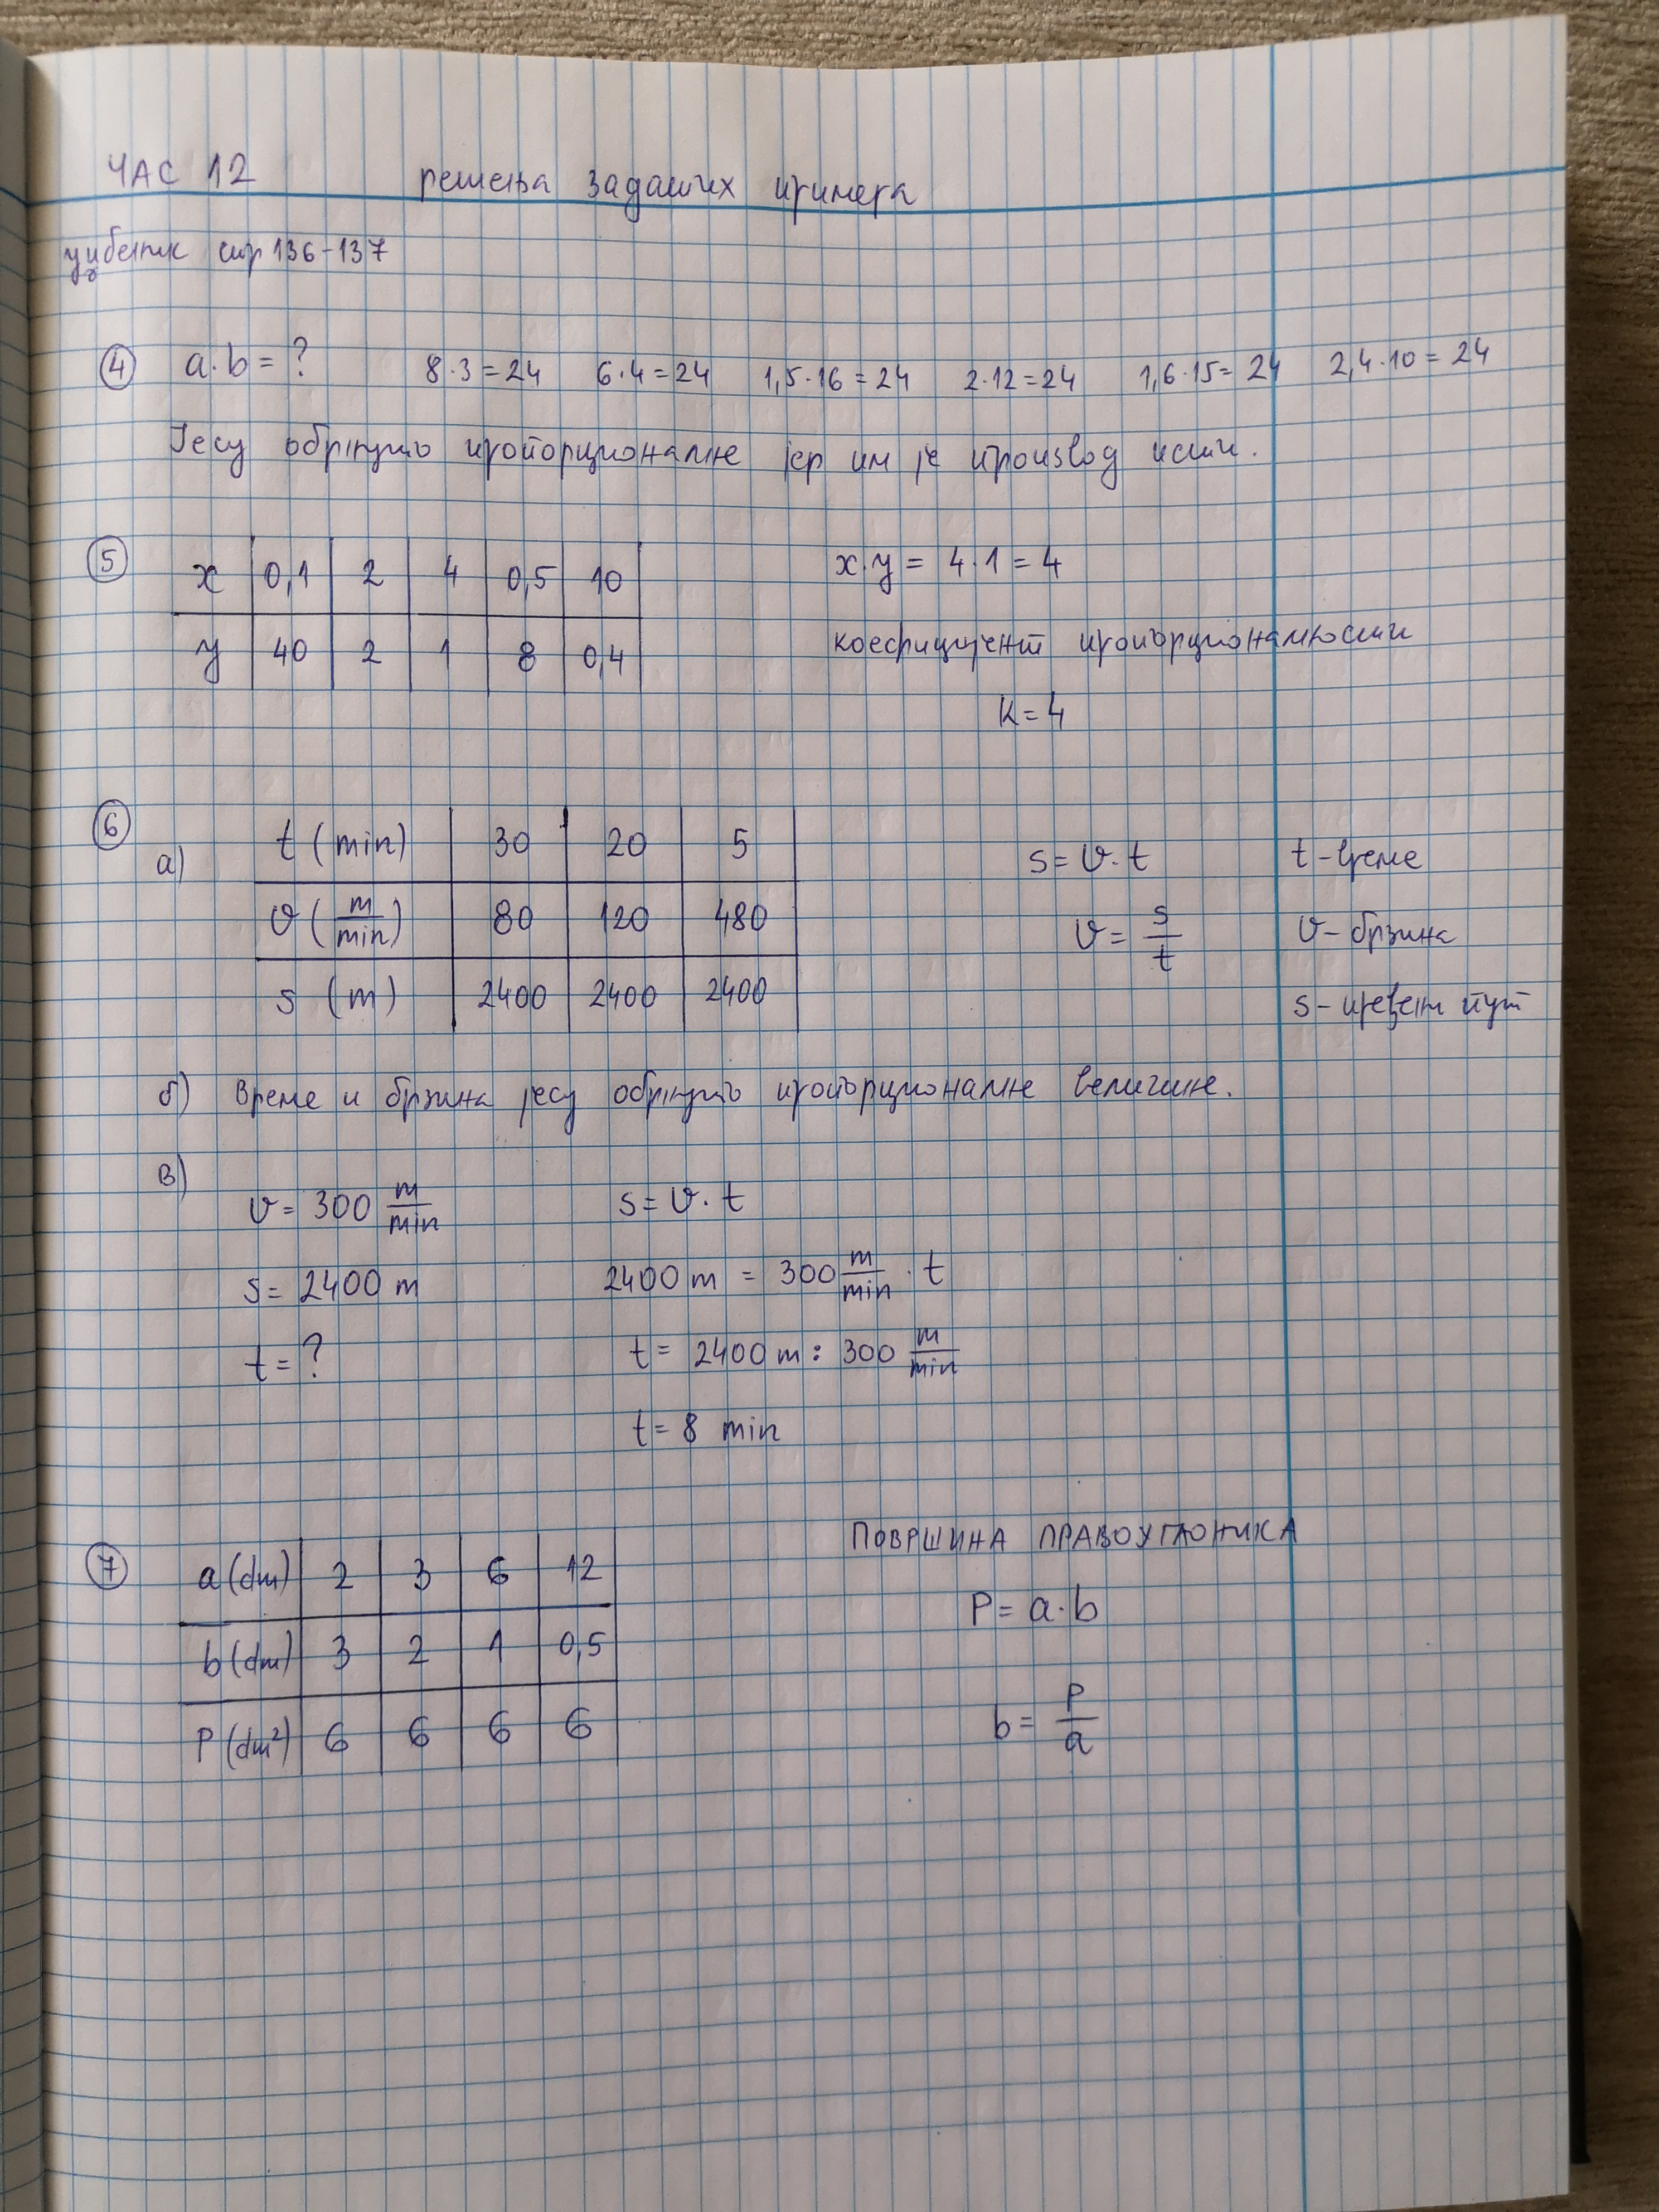 ЧАС 12 решења задатих примера
уџбеник стр 136-137
④ a·b = ? 8·3=24 6·4=24 1,5·16=24 2·12=24 1,6·15=24 2,4·10=24
Јесу обрнуто пропорционалне јер им је производ исти.
⑤ x 0,1 2 4 0,5 10 x·y = 4·1 = 4
y 40 2 1 8 0,4 коефицијент пропорционалности
k=4
⑥ а) t (min) 30 20 5 s = v·t t - време
v (m/min) 80 120 480 v = s/t v - брзина
s (m) 2400 2400 2400 s - пређени пут
б) Време и брзина јесу обрнуто пропорционалне величине.
в) v = 300 m/min s = v·t
s = 2400 m 2400 m = 300 m/min · t
t = ? t = 2400 m : 300 m/min
t = 8 min
ПОВРШИНА ПРАВОУГАОНИКА
⑦ a (dm) 2 3 6 12 P = a·b
b (dm) 3 2 1 0,5
P (dm²) 6 6 6 6 b = P/a